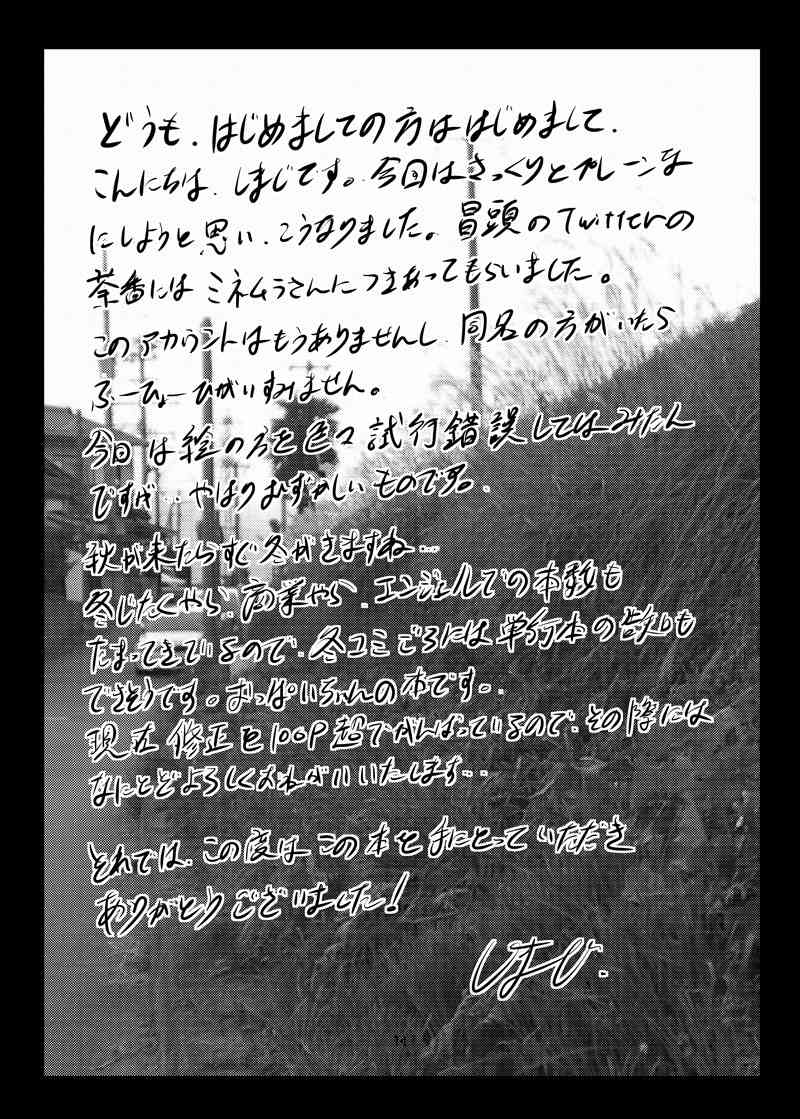 どうも、はじめましての方ははじめまして、
こんにちは、しまじです。今回はさっくりとプレーンな
にしようと思い、こうなりました。冒頭のTwitterの
茶番にはミネムラさんにつきあってもらいました。
このアカウントはもうありませんし、同名の方がいたら
ふーひょーひがいすみません。
今回は絵の方を色々試行錯誤してはみたん
ですが‥やはりむずかしいものです。
秋が来たらすぐ冬がきますね‥
冬じたくやら、商業やら、エンジェルでの本数も
たまってきているので、冬コミごろには単行本の話しも
できそうです。おっぱいちゃんの本です。
現在修正を100P超でがんばっているので、その際には
なにとぞよろしくおねがいいたします‥
それでは、この度はこの本を手にとっていただき
ありがとうございました!
14